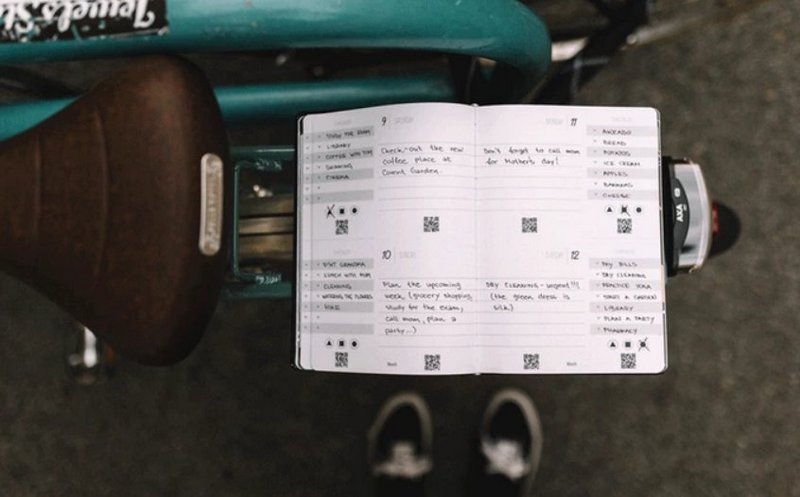 Jewels St
9 SATURDAY
STUDY FOR EXAM
LIBRARY
COFFEE WITH TOM
DRAWING
CINEMA
Check-out the new
coffee place at
Covent Garden.
10 SUNDAY
VISIT GRANDMA
LUNCH WITH MUM
CLEANING
WATERING THE FLOWERS
HIKE
Plan the upcoming
week (grocery shopping,
study for the exam,
call mom, plan a
party...)
Week
11
Don't forget to call mom
for Mother's day!
AVOCADO
BREAD
POTATOES
ICE CREAM
APPLES
BANANAS
CHEESE
12
DRY CLEANING - urgent!!!
(the green dress is
silk)
Week
PAY BILLS
DRY CLEANING
PRACTICE YOGA
START A GARDEN
LIBRARY
PLAN A PARTY
PHARMACY
AXA